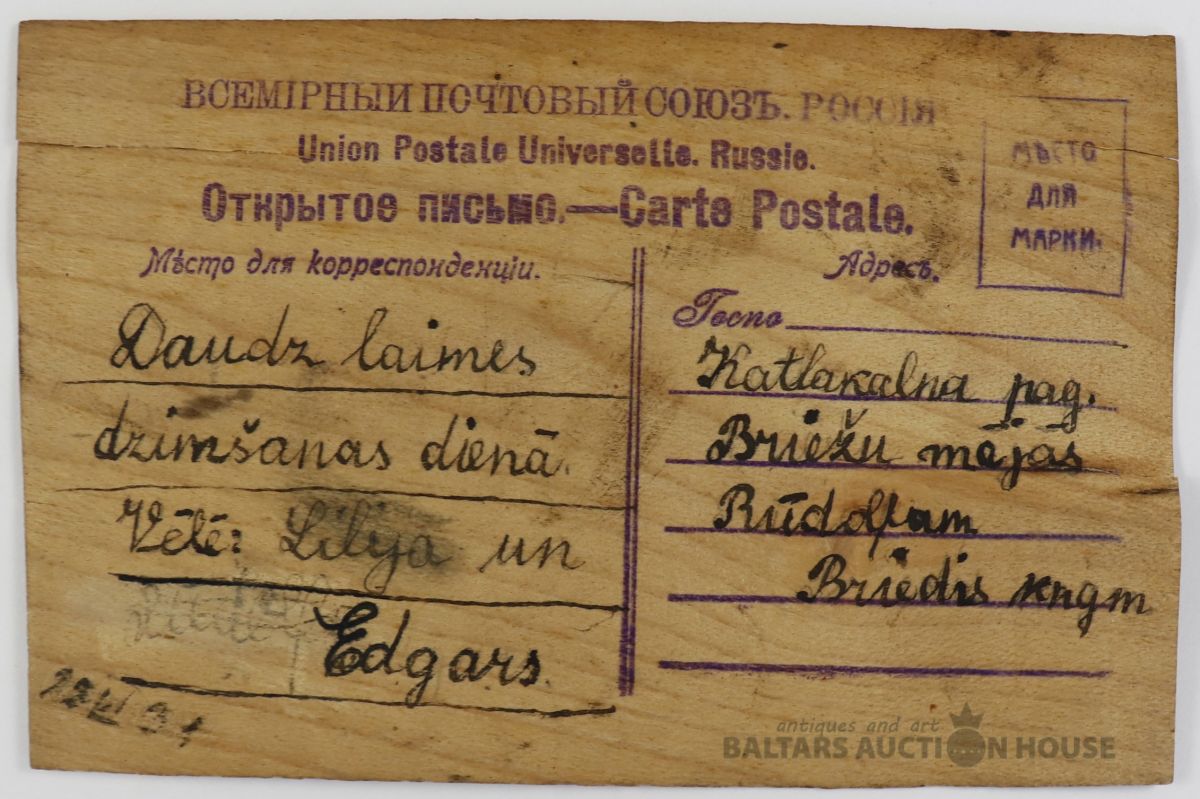 ВСЕМІРНЫЙ ПОЧТОВЫЙ СОЮЗЪ. РОССІЯ
Union Postale Universelle. Russie.
Открытое письмо.—Carte Postale.
МѢСТО
ДЛЯ
МАРКИ.
Мѣсто для корреспонденціи.
Daudz laimes
dzimšanas dienā.
Vēlē: Lilija un
Edgars.
Адресъ.
Госпо
Katlakalna pag.
Briežu mājās
Rūdolfam
Briedis kngm
antiques and art
BALTARS AUCTION HOUSE